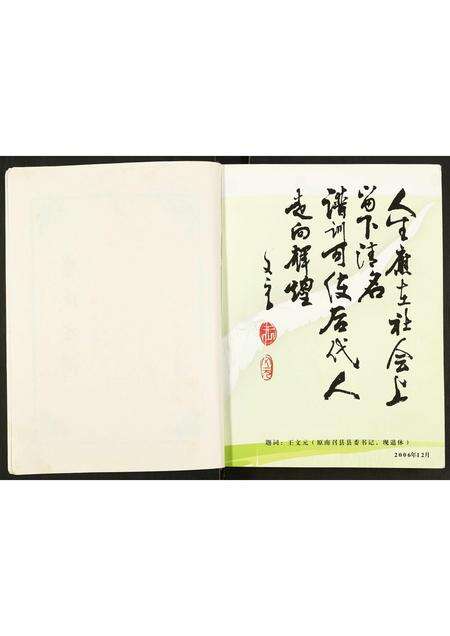 人生應在社会上
留下清名
谱训可使后代人
走向辉煌
文元
题词：王文元（原南召县县委书记、现退休）
2006年12月